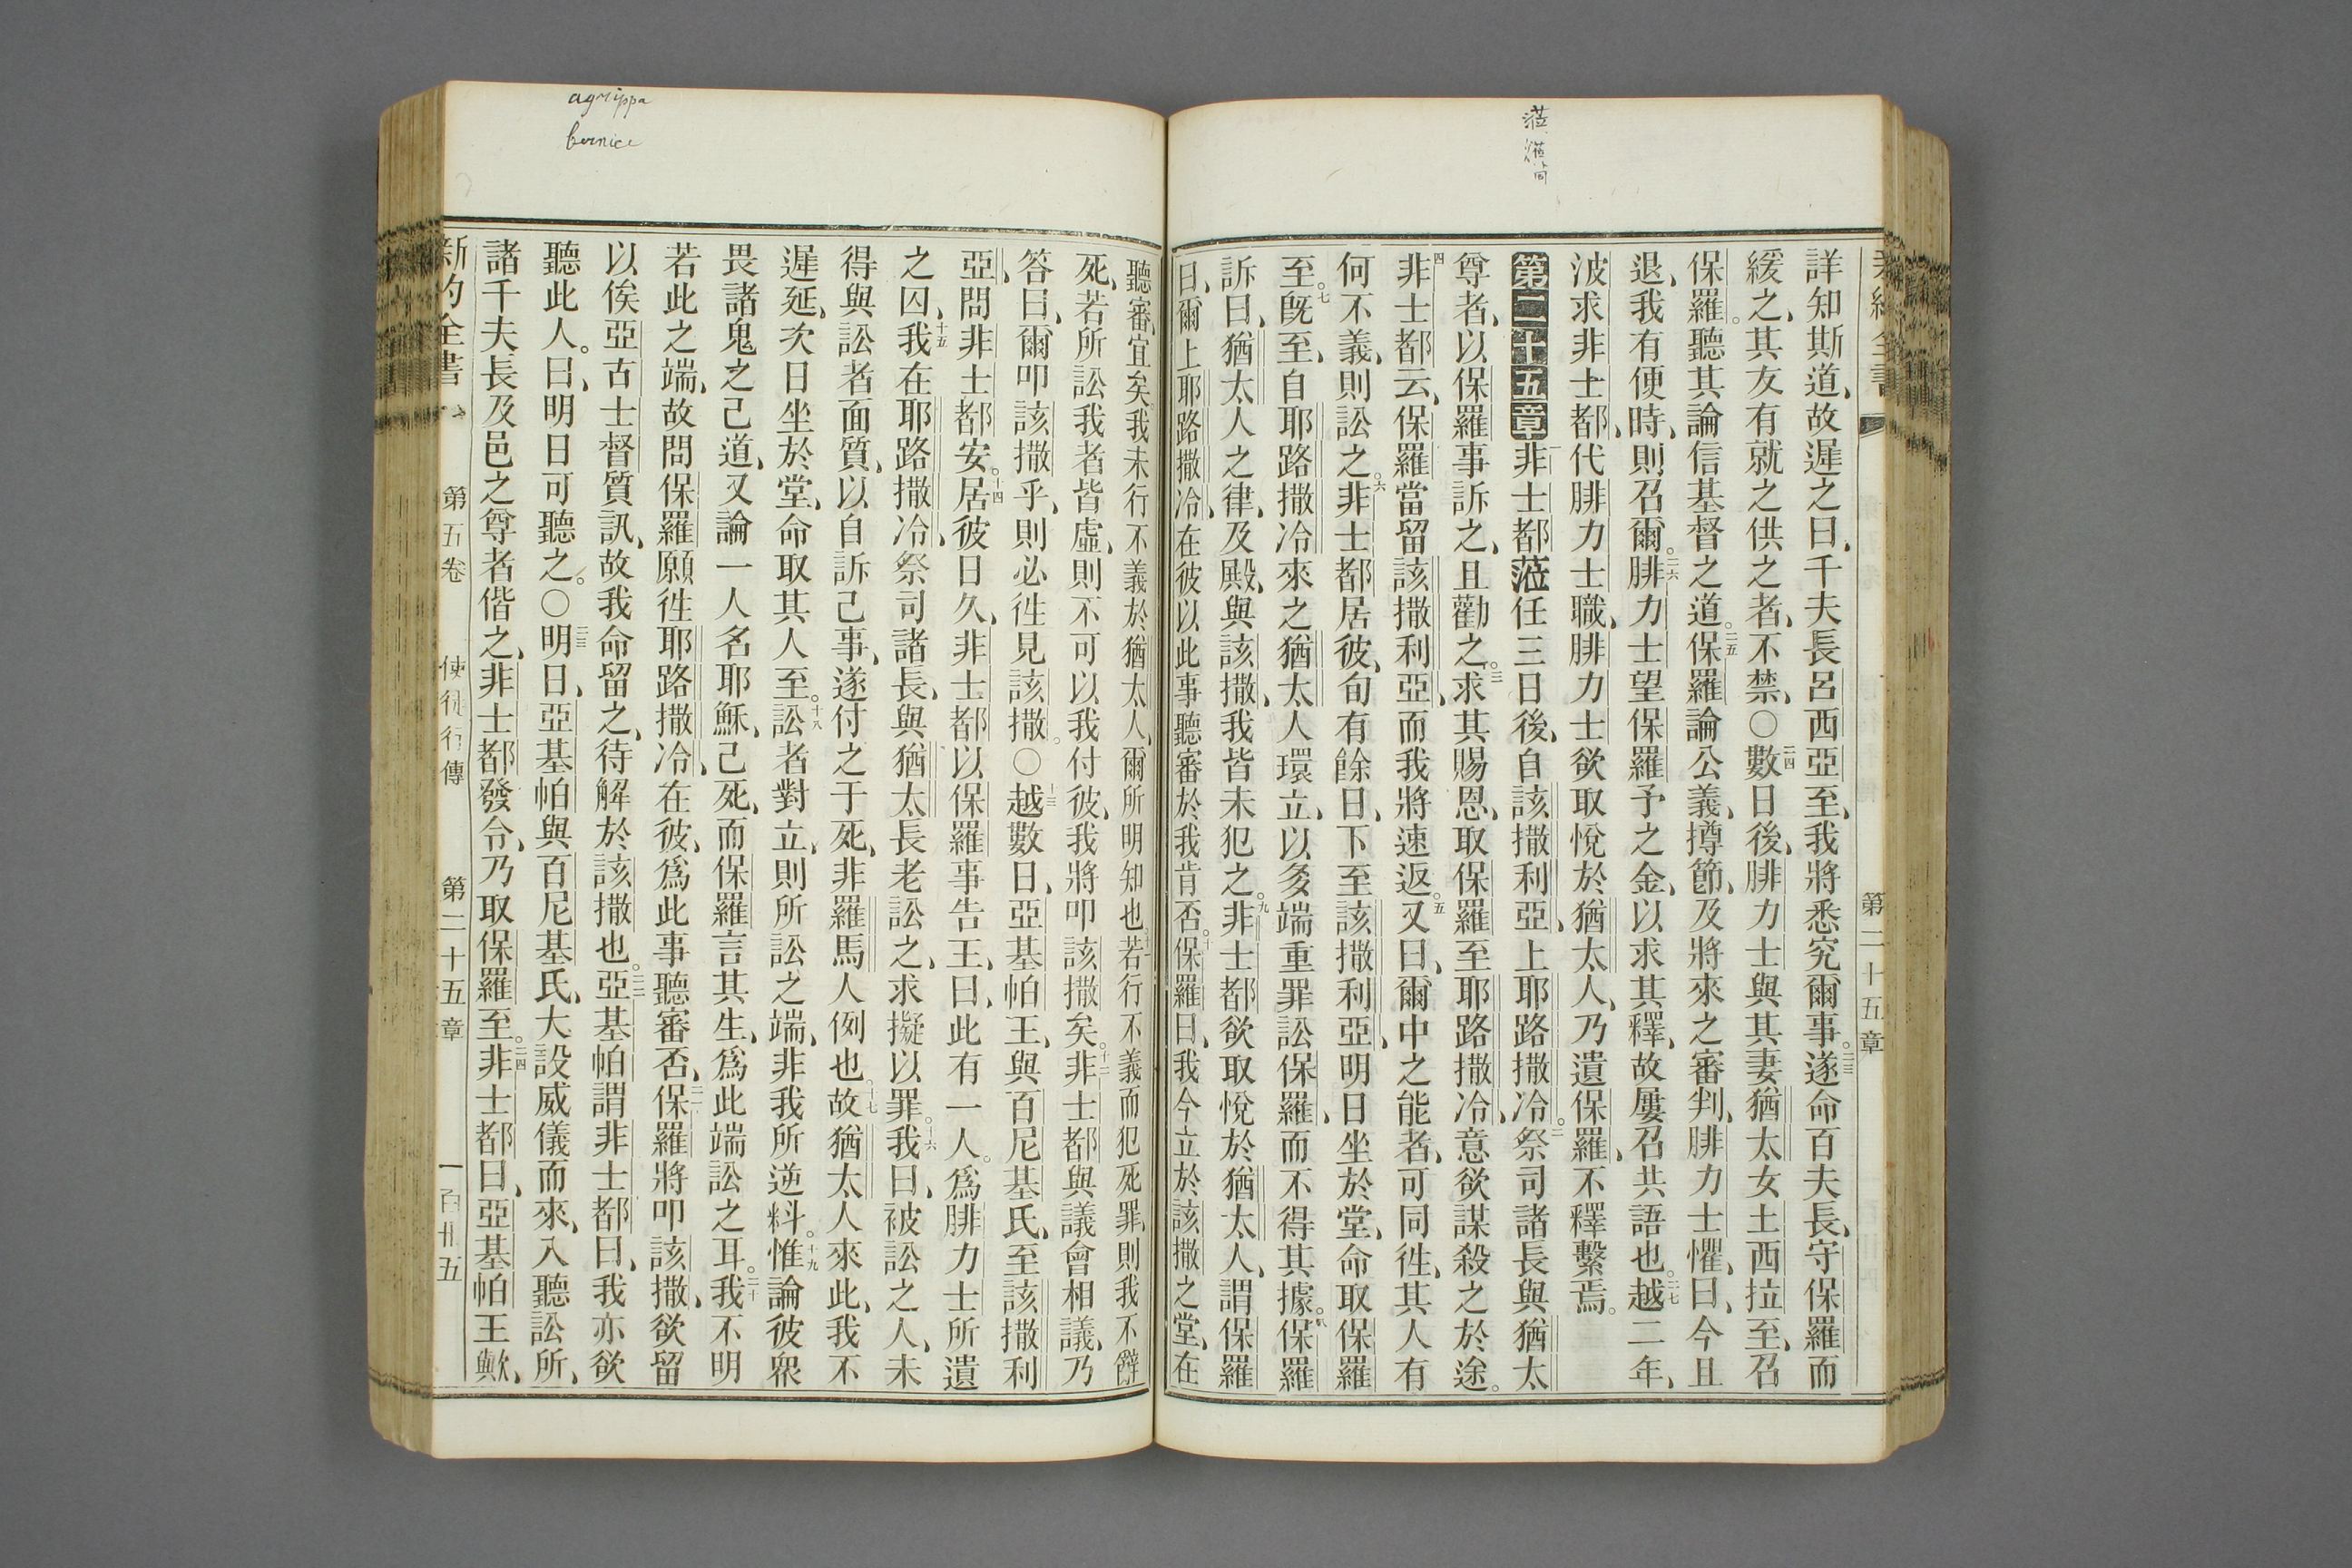 第二十五章
詳知斯道、故遲之曰、千夫長呂西亞至、我將悉究爾事。二三遂命百夫長、守保羅而
緩之、其友有就之供之者、不禁、○二四數日後、腓力士與其妻猶太女土西拉至、召
保羅。聽其論信基督之道。二五保羅論公義、撙節、及將來之審判、腓力士懼、曰、今且
退、我有便時、則召爾。二六腓力士望保羅予之金、以求其釋、故屢召共語也。二七越二年、
波求非士都、代腓力士職、腓力士欲取悅於猶太人、乃遺保羅、不釋繫焉。
第二十五章一非士都蒞任三日後、自該撒利亞、上耶路撒冷。二祭司諸長與猶太
尊者、以保羅事訴之、且勸之。三求其賜恩、取保羅至耶路撒冷、意欲謀殺之於途。
四非士都云、保羅當留該撒利亞、而我將速返。五又曰、爾中之能者、可同徃、其人有
何不義、則訟之。六非士都居彼、旬有餘日、下至該撒利亞、明日坐於堂、命取保羅
至。七旣至、自耶路撒冷來之猶太人環立、以多端重罪訟保羅、而不得其據。八保羅
訴曰、猶太人之律、及殿、與該撒、我皆未犯之。九非士都欲取悅於猶太人、謂保羅
曰、爾上耶路撒冷、在彼以此事聽審於我肯否。十保羅曰、我今立於該撒之堂、在
agrippa
bernice
聽審、宜矣、我未行不義於猶太人、爾所明知也十一若行不義而犯死罪、則我不辭
死、若所訟我者皆虛、則不可以我付彼、我將叩該撒矣。十二非士都與議會相議、乃
答曰、爾叩該撒乎、則必徃見該撒。○十三越數日、亞基帕王、與百尼基氏、至該撒利
亞、問非士都安。十四居彼日久、非士都以保羅事告王、曰、此有一人。爲腓力士所遺
之囚、十五我在耶路撒冷、祭司諸長、與猶太長老訟之、求擬以罪。十六我曰、被訟之人、未
得與訟者面質、以自訴己事、遂付之于死、非羅馬人例也。十七故猶太人來此、我不
遲延、次日坐於堂、命取其人至。十八訟者對立、則所訟之端、非我所逆料。十九惟論彼衆
畏諸鬼之己道、又論一人名耶穌、已死、而保羅言其生、爲此端訟之耳。二十我不明
若此之端、故問保羅願徃耶路撒冷、在彼、爲此事聽審否、二一保羅將叩該撒、欲留
以俟亞古士督質訊、故我命留之、待解於該撒也。二二亞基帕謂非士都曰、我亦欲
聽此人。曰、明日可聽之。○二三明日、亞基帕與百尼基氏、大設威儀而來、入聽訟所、
諸千夫長及邑之尊者偕之、非士都發令、乃取保羅至。二四非士都曰、亞基帕王歟、
新約全書
第五卷
使徒行傳
第二十五章
一百卅五